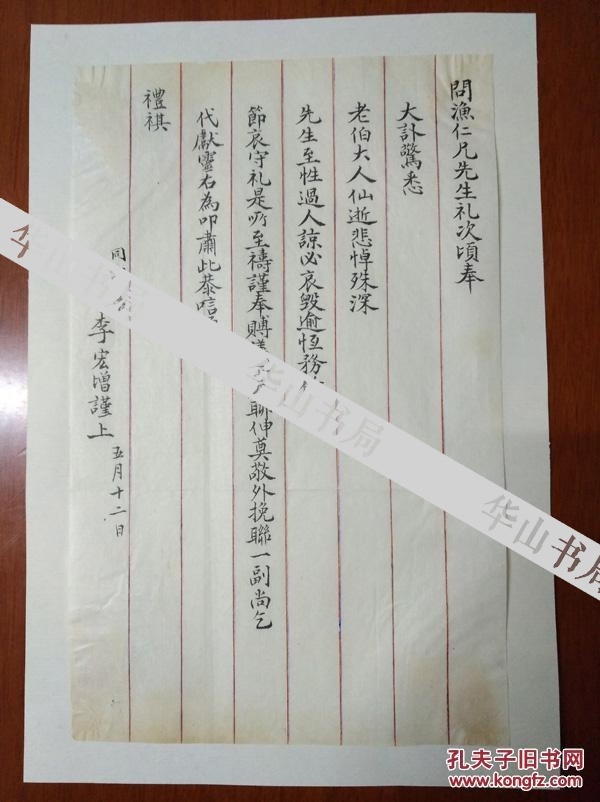 問漁仁兄先生礼次頃奉
大訃驚悉
老伯大人仙逝悲悼殊深
先生至性過人諒必哀毀逾恆務
節哀守礼是所至禱謹奉賻 聊伸奠敬外挽聯一副尚乞
代獻靈右為叩肅此恭唁
禮祺
同 李宏增謹上
五月十二日
华山书局
华山书局
华山书局
孔夫子旧书网
www.kongfz.com